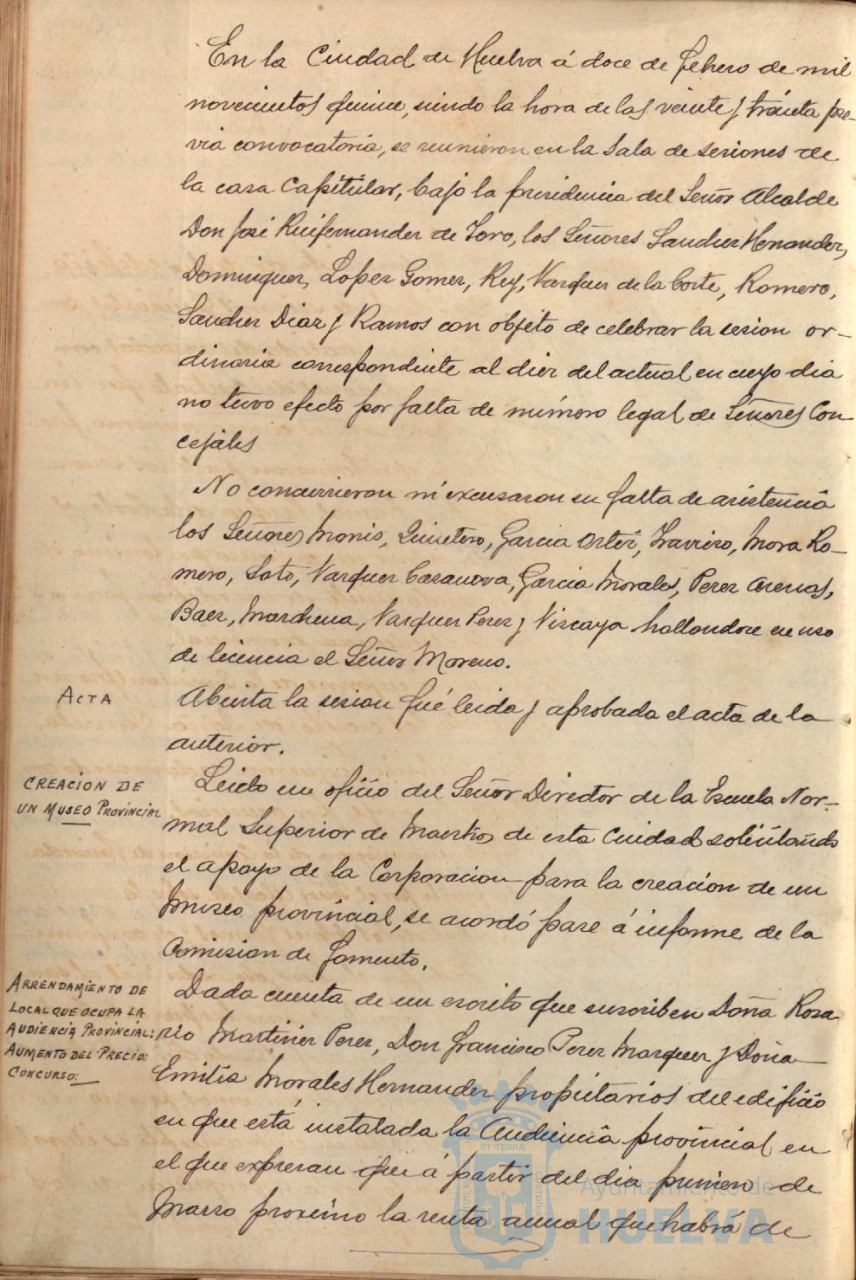 En la Ciudad de Huelva á doce de febrero de mil
novecientos quince, siendo la hora de las veinte y treinta pre-
via convocatoria, se reunieron en la Sala de sesiones de
la casa Capitular, bajo la presidencia del Señor Alcalde
Don José Ruifernandez de Toro, los Señores Sanchez Hernandez,
Dominguez, Lopez Gomez, Rey, Vazquez de la Corte, Romero,
Sanchez Diaz y Ramos con objeto de celebrar la sesion or-
dinaria correspondiente al diez del actual en cuyo dia
no tuvo efecto por falta de número legal de Señores Con
cejales
No concurrieron ni excusaron su falta de asistencia
los Señores Monis, Quintero, Garcia Ortiz, Travieso, Mora Ro-
mero, Soto, Vazquez Casanova, Garcia Morales, Perez Arenas,
Baez, Marchena, Vazquez Perez y Viscaya hallandose en uso
de licencia el Señor Moreno.
ACTA
Abierta la sesion fué leida y aprobada el acta de la
anterior.
CREACION DE
UN MUSEO PROVINCIAL
Leido un oficio del Señor Director de la Escuela Nor-
mal Superior de Maestros de esta Ciudad solicitando
el apoyo de la Corporacion para la creación de un
Museo provincial, se acordó pase á informe de la
Comision de Fomento.
ARRENDAMIENTO DE
LOCAL QUE OCUPA LA
AUDIENCIA PROVINCIAL:
AUMENTO DEL PRECIO:
CONCURSO:
Dada cuenta de un escrito que suscriben Doña Rosa
rio Martinez Perez, Don Francisco Perez Marquez y Doña
Emilia Morales Hernandez propietarios del edificio
en que está instalada la Audiencia provincial en
el que expresan que á partir del dia primero de
Marzo proximo la renta anual que habrá de
Ayuntamiento de
HUELVA